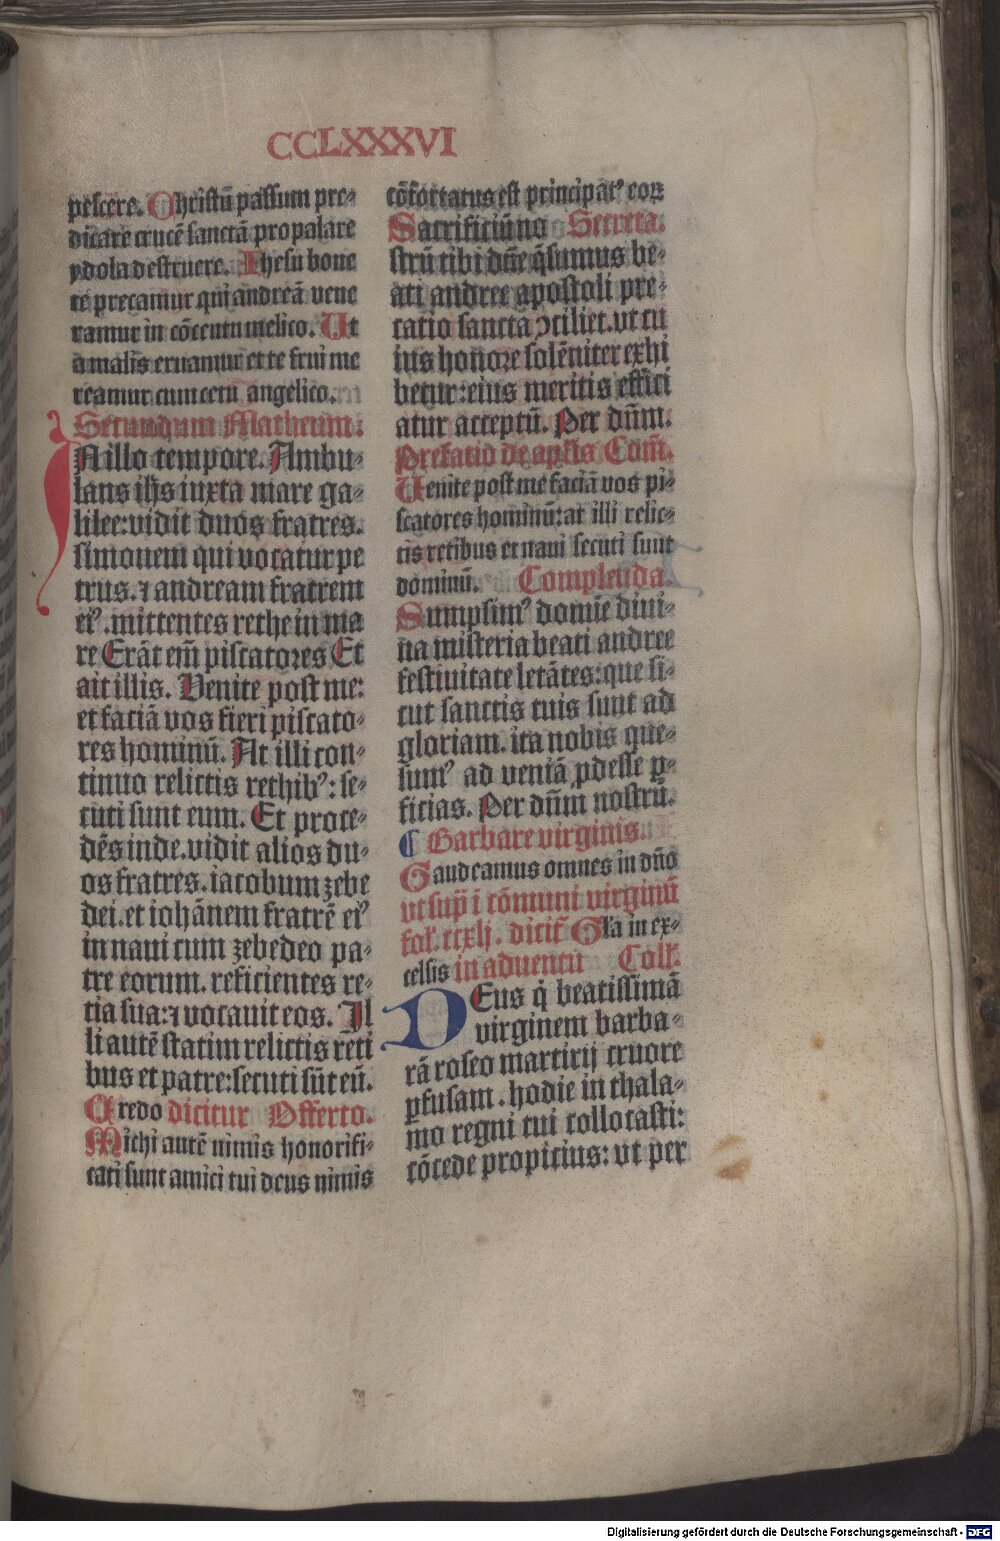 CCLXXXVI
pescere. Christū passum pre-
dicare crucē sanctā propalare
ydola destruere. Ihesu bone
te precamur qui andreā vene
ramur in cōcentu melico. Ut
a malis eruamur et te frui me
reamur cum cetu angelico.
Secundum Matheum.
IN illo tempore. Ambu-
lans ihs iuxta mare ga-
lilee: vidit duos fratres.
simonem qui vocatur pe
trus. ⁊ andream fratrem
eiꝰ. mittentes rethe in ma
re Erāt em̄ piscatores Et
ait illis. Venite post me:
et faciā vos fieri piscato-
res hominū. At illi con-
tinuo relictis rethibꝰ: se-
cuti sunt eum. Et proce-
dēs inde. vidit alios du-
os fratres. iacobum zebe
dei. et iohānem fratrē eiꝰ
in naui cum zebedeo pa-
tre eorum. reficientes re-
tia sua: ⁊ vocauit eos. Il
li autē statim relictis reti
bus et patre: secuti sūt eū.
Credo dicitur Offerto.
Michi autē nimis honorifi-
cati sunt amici tui deus nimis
cōfortatus est principatꝰ eoꝝ
Sacrificiū no Secreta.
strū tibi dn̄e q̄sumus be-
ati andree apostoli pre-
catio sancta ↄciliet. vt cu
ius honore solēniter exhi
betur: eius meritis effici
atur acceptū. Per dn̄m.
Prefatio de aplis Com̄.
Venite post me faciā vos pi-
scatores hominū: at illi relic-
tis retibus et naui secuti sunt
dominū. Complenda.
Sumpsimꝰ domīe diui-
na misteria beati andree
festiuitate letātes: que si-
cut sanctis tuis sunt ad
gloriam. ita nobis que-
sumꝰ ad veniā ꝓdesse ꝑ-
ficias. Per dn̄m nostrū.
¶ Barbare virginis.
Gaudeamus omnes in dn̄o
vt sup̄ ī cōmuni virginū
fol. ccxlj. dicit̄ Gl̄a in ex-
celsis in aduentu Coll.
DEus q̄ beatissimā
virginem barba-
rā roseo martirij cruore
ꝑfusam. hodie in thala-
mo regni tui collocasti:
cōcede propicius: vt per
Digitalisierung gefördert durch die Deutsche Forschungsgemeinschaft - DFG